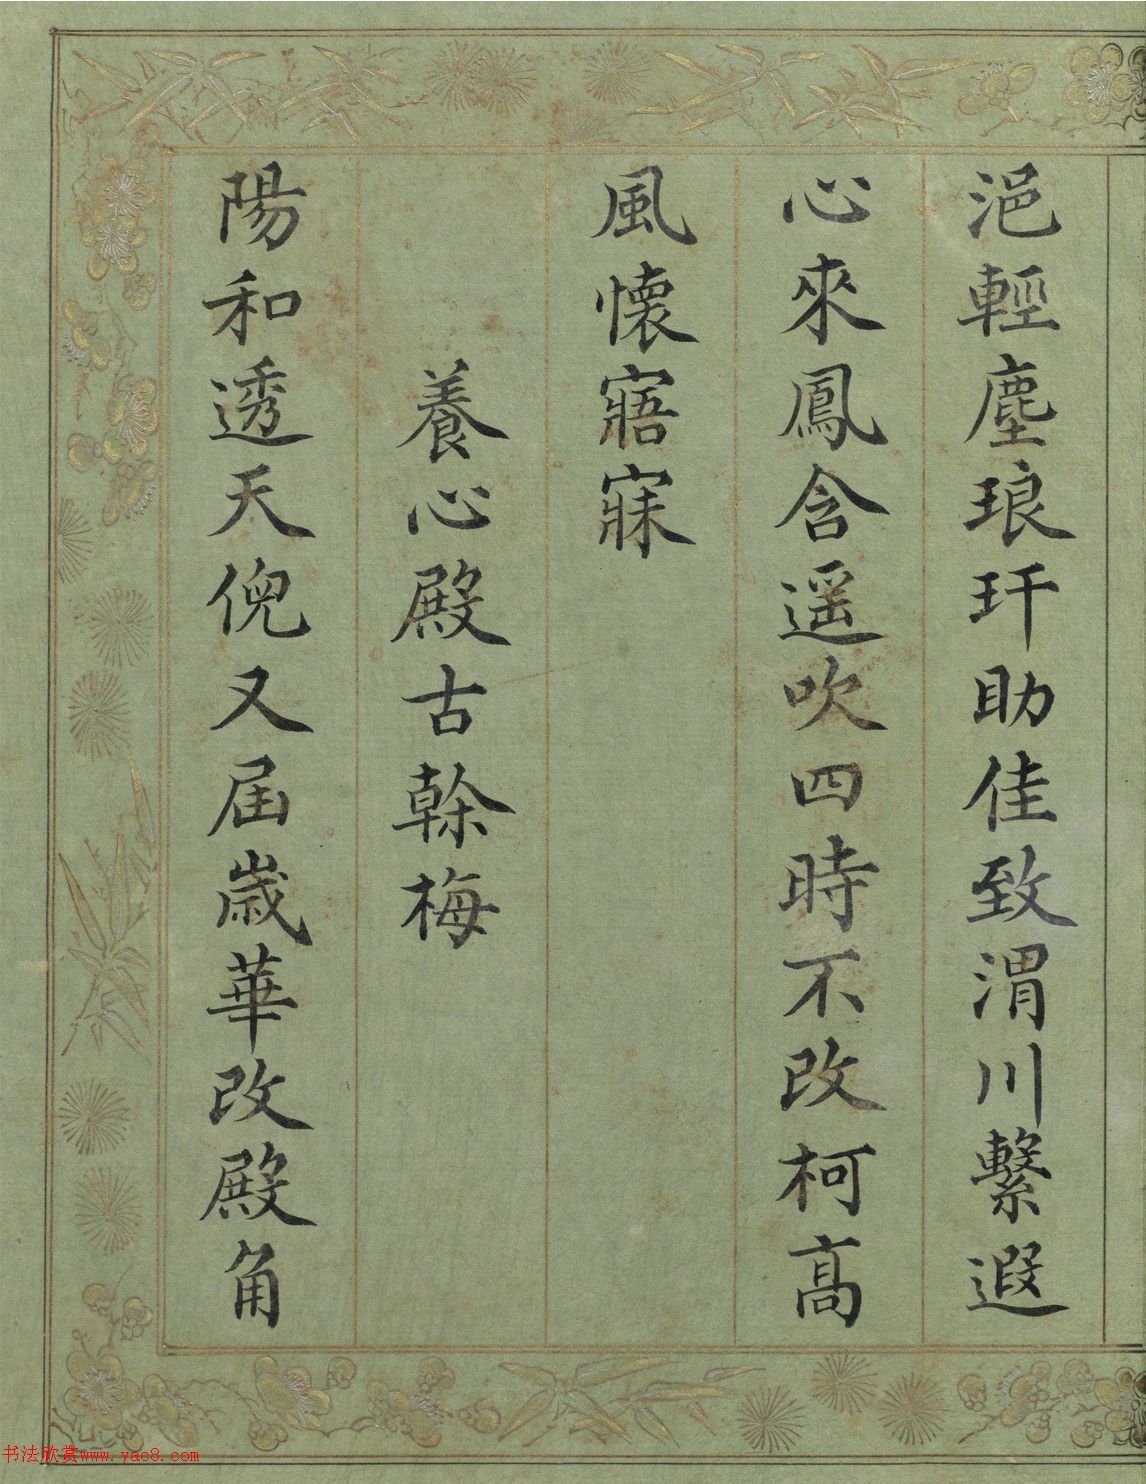 浥輕塵琅玕助佳致渭川繫遐
心來鳳含遥吹四時不改柯高
風懷寤寐
養心殿古榦梅
陽和透天倪又届歲華改殿角
书法欣赏www.yac8.com